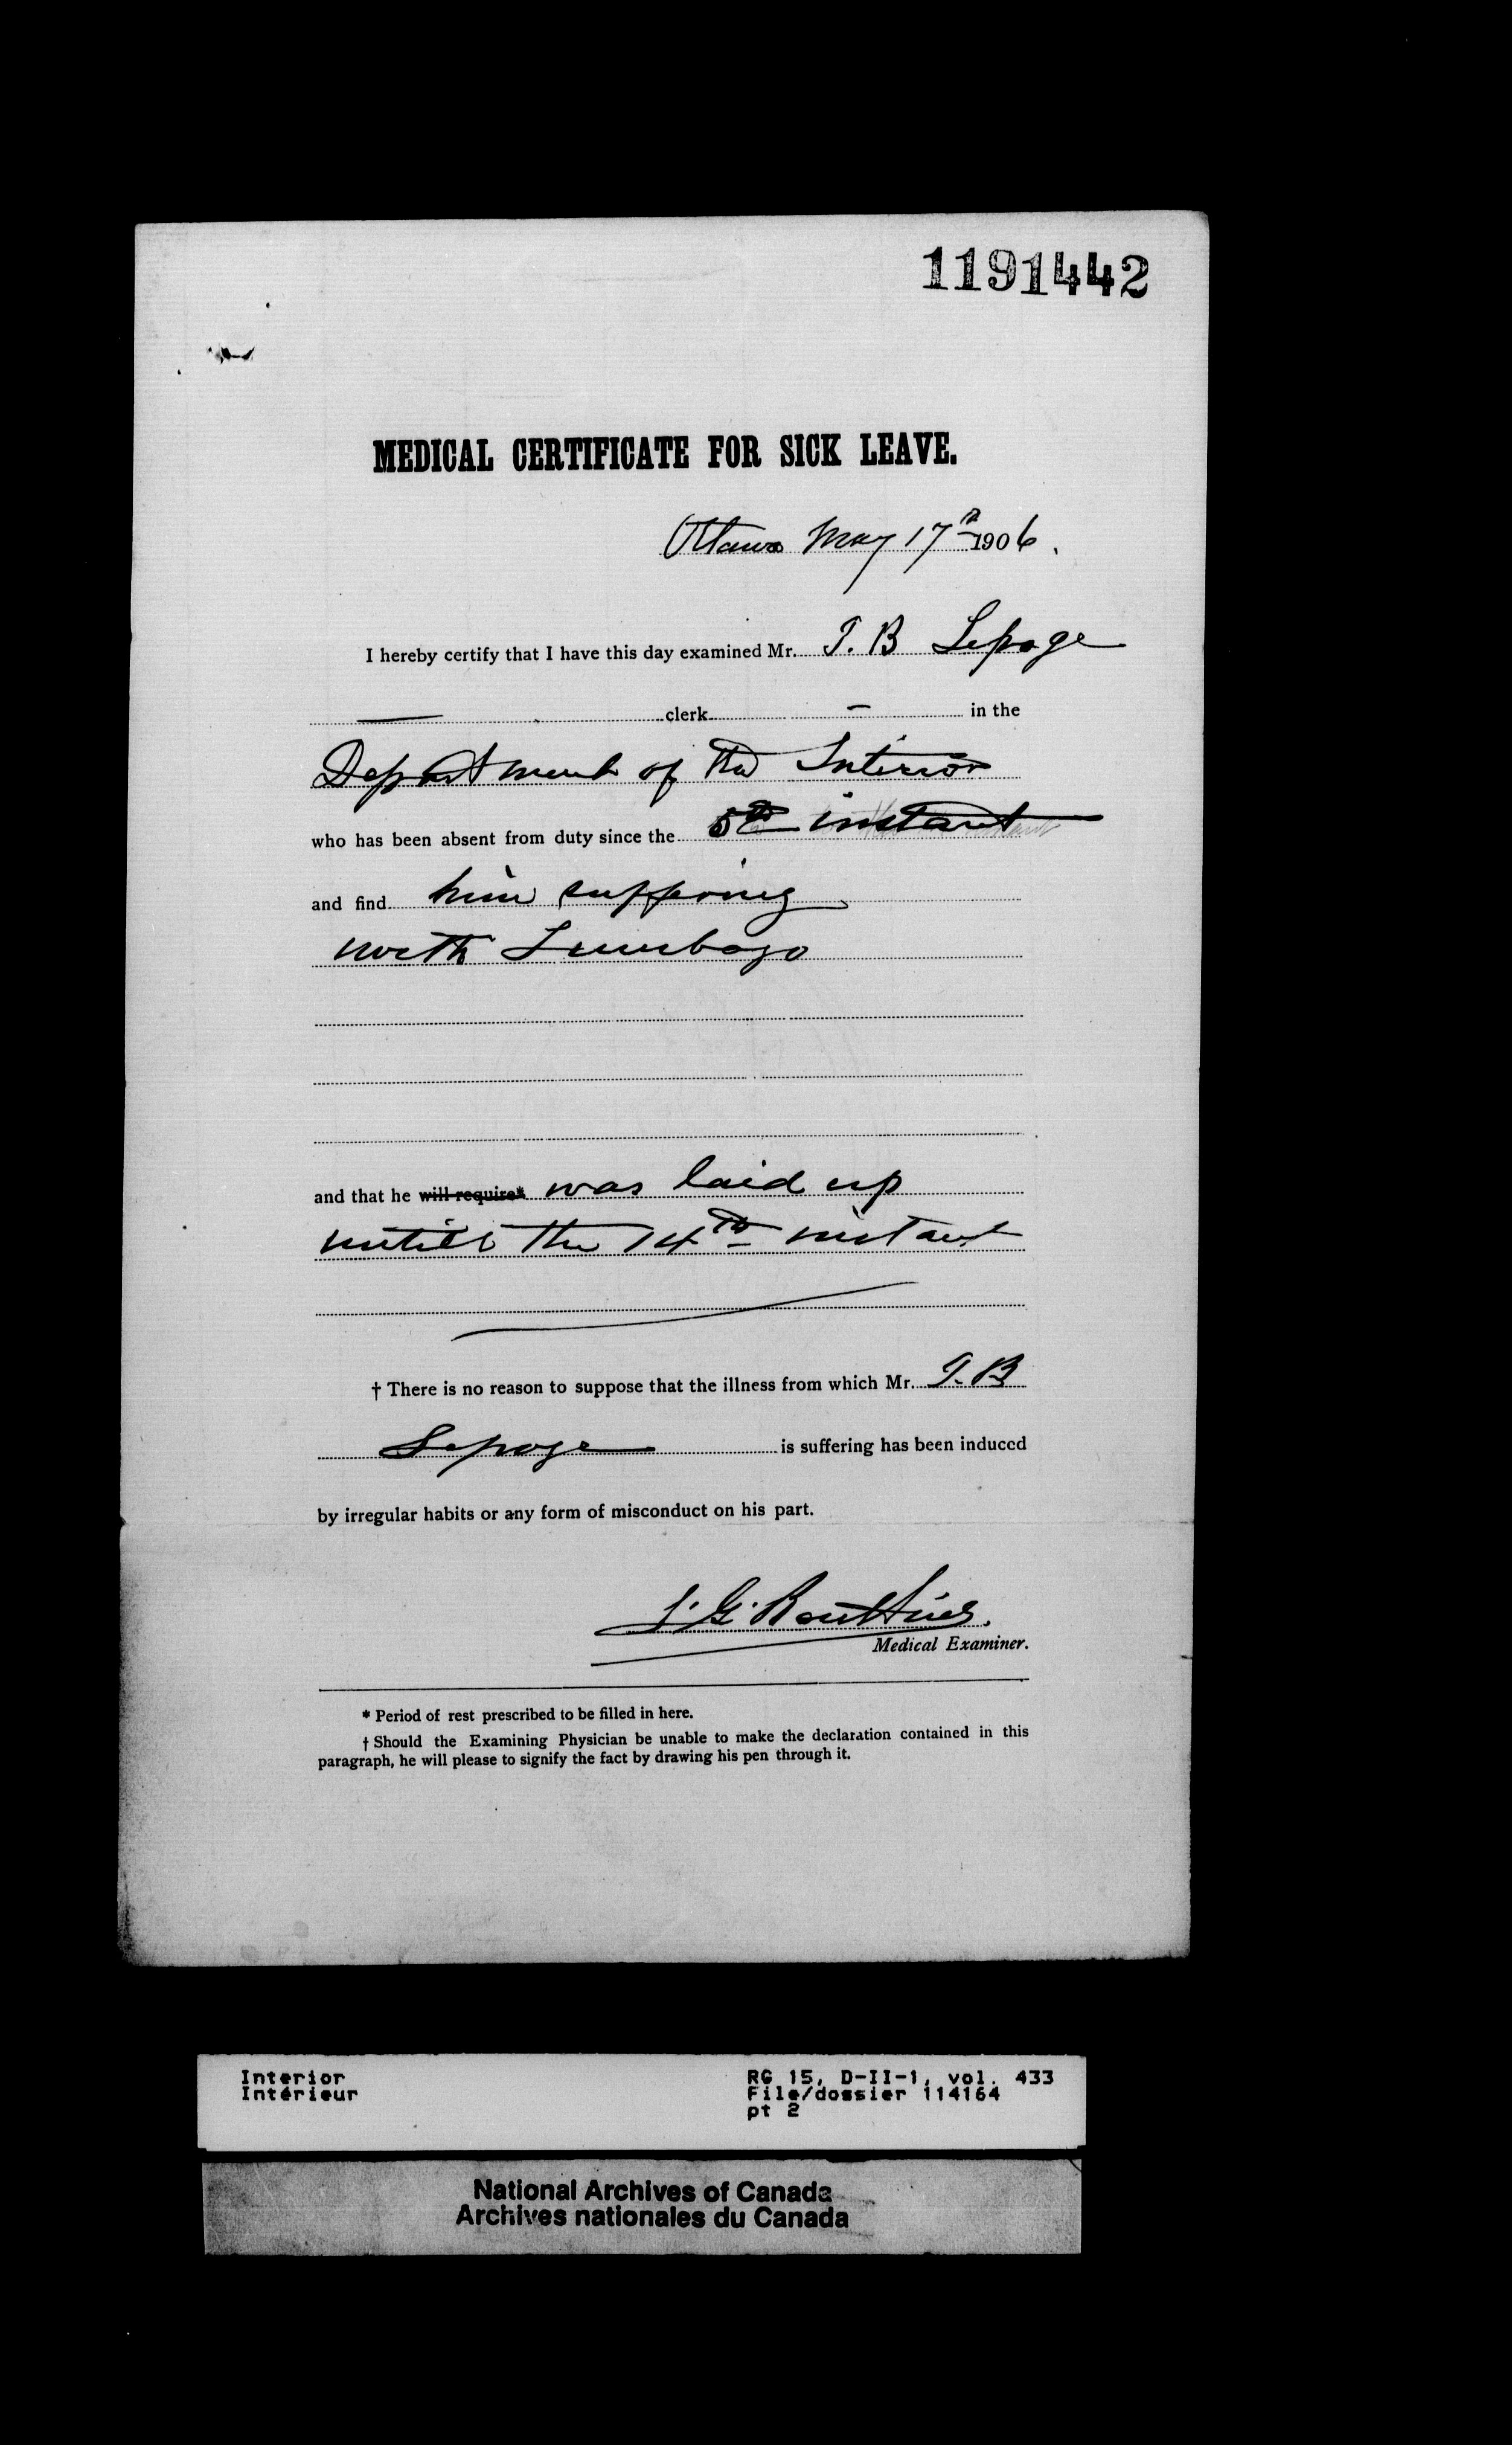 1191442
MEDICAL CERTIFICATE FOR SICK LEAVE.
Ottawa May 17th 1906.
I hereby certify that I have this day examined Mr. T. B Lepage
— clerk — in the
Department of the Interior
who has been absent from duty since the 5th instant
and find him suffering
with Lumbago
and that he will require* was laid up
untill the 14th instant
† There is no reason to suppose that the illness from which Mr. T. B
Lepage is suffering has been induced
by irregular habits or any form of misconduct on his part.
Medical Examiner.
* Period of rest prescribed to be filled in here.
† Should the Examining Physician be unable to make the declaration contained in this
paragraph, he will please to signify the fact by drawing his pen through it.
Interior RG 15, D-II-1, vol. 433
Intérieur File/dossier 114164
pt 2
National Archives of Canada
Archives nationales du Canada